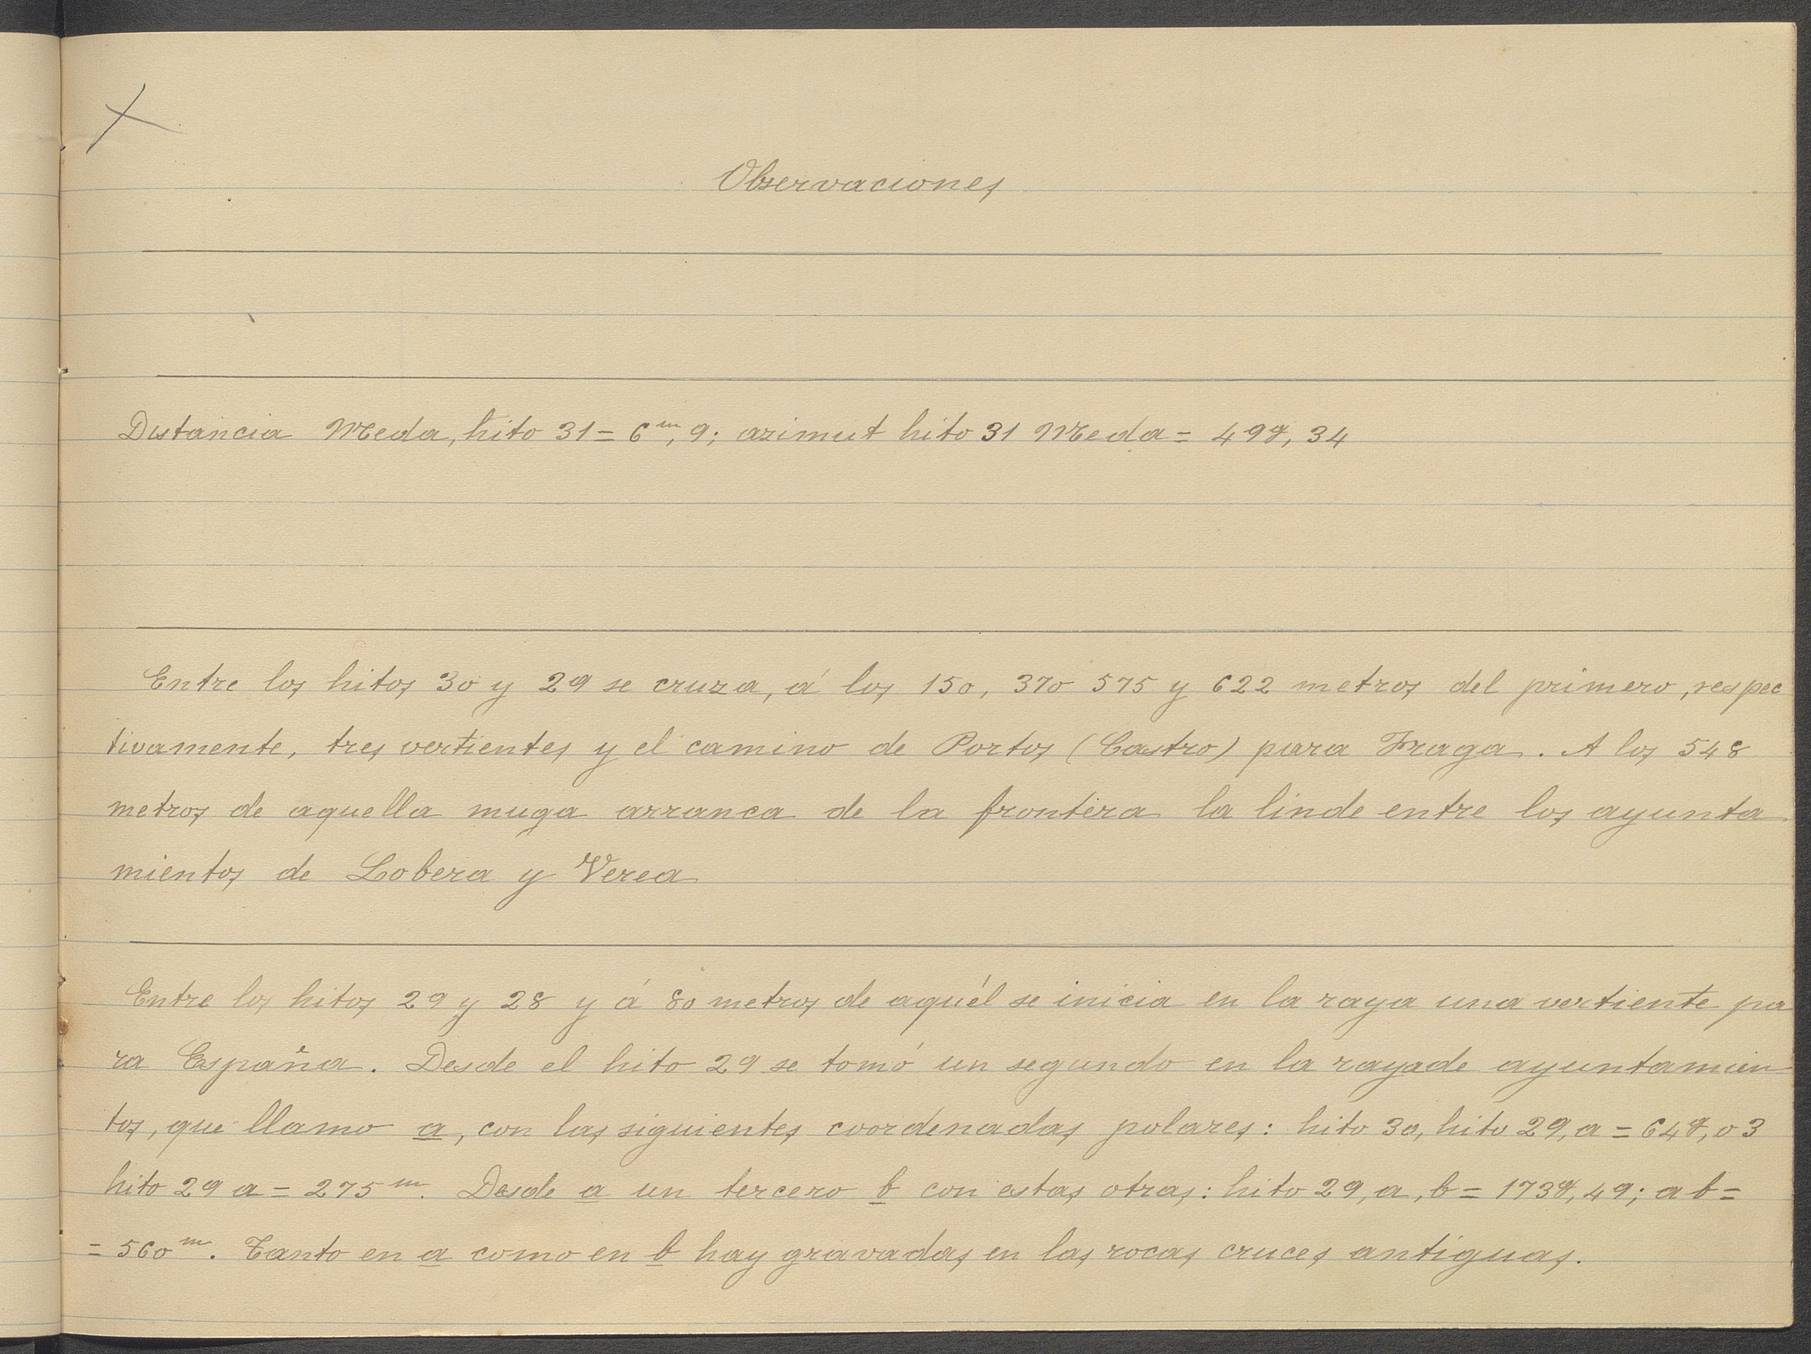 Observaciones
Distancia Meda, hito 31 = 6ᵐ,9; azimut hito 31 Meda = 49g, 34
Entre los hitos 30 y 29 se cruza, á los 150, 370 575 y 622 metros del primero, respec
tivamente, tres vertientes y el camino de Portos (Castro) para Fraga. A los 548
metros de aquella muga arranca de la frontera la linde entre los ayunta
mientos de Lobera y Verea
Entre los hitos 29 y 28 y á 80 metros de aquél se inicia en la raya una vertiente pa
ra España. Desde el hito 29 se tomó un segundo en la raya de ayuntamien
tos, que llamo a, con las siguientes coordenadas polares: hito 30, hito 29, a = 64g,03
hito 29 a = 275ᵐ. Desde a un tercero b con estas otras: hito 29, a, b = 173g,49; a b =
= 560ᵐ. Tanto en a como en b hay gravadas en las rocas cruces antiguas.